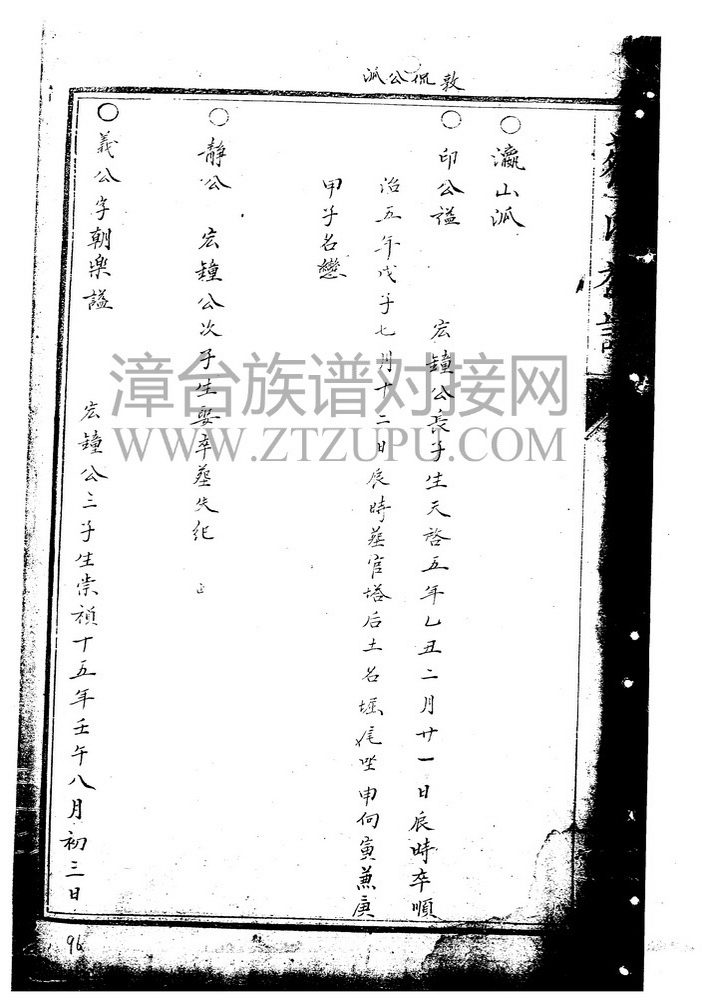 敦侃公派
瀛山派
○印公諡 宏鐘公長子生天啓五年乙丑二月廿一日辰時卒順
治五年戊子七月十二日辰時葬官塔后土名堀尾坐申向寅兼庚
甲子名戀
○靜公 宏鐘公次子生娶卒葬失紀
○義公字朝樂諡 宏鐘公三子生崇禎十五年壬午八月初三日
漳台族谱对接网
WWW.ZTZUPU.COM
96